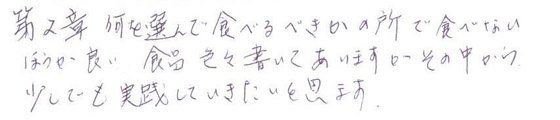 第2章 何を選んで食べるべきかの所で食べない
ほうが良い 食品 色々書いてありますが その中から
少しでも実践していきたいと思います.